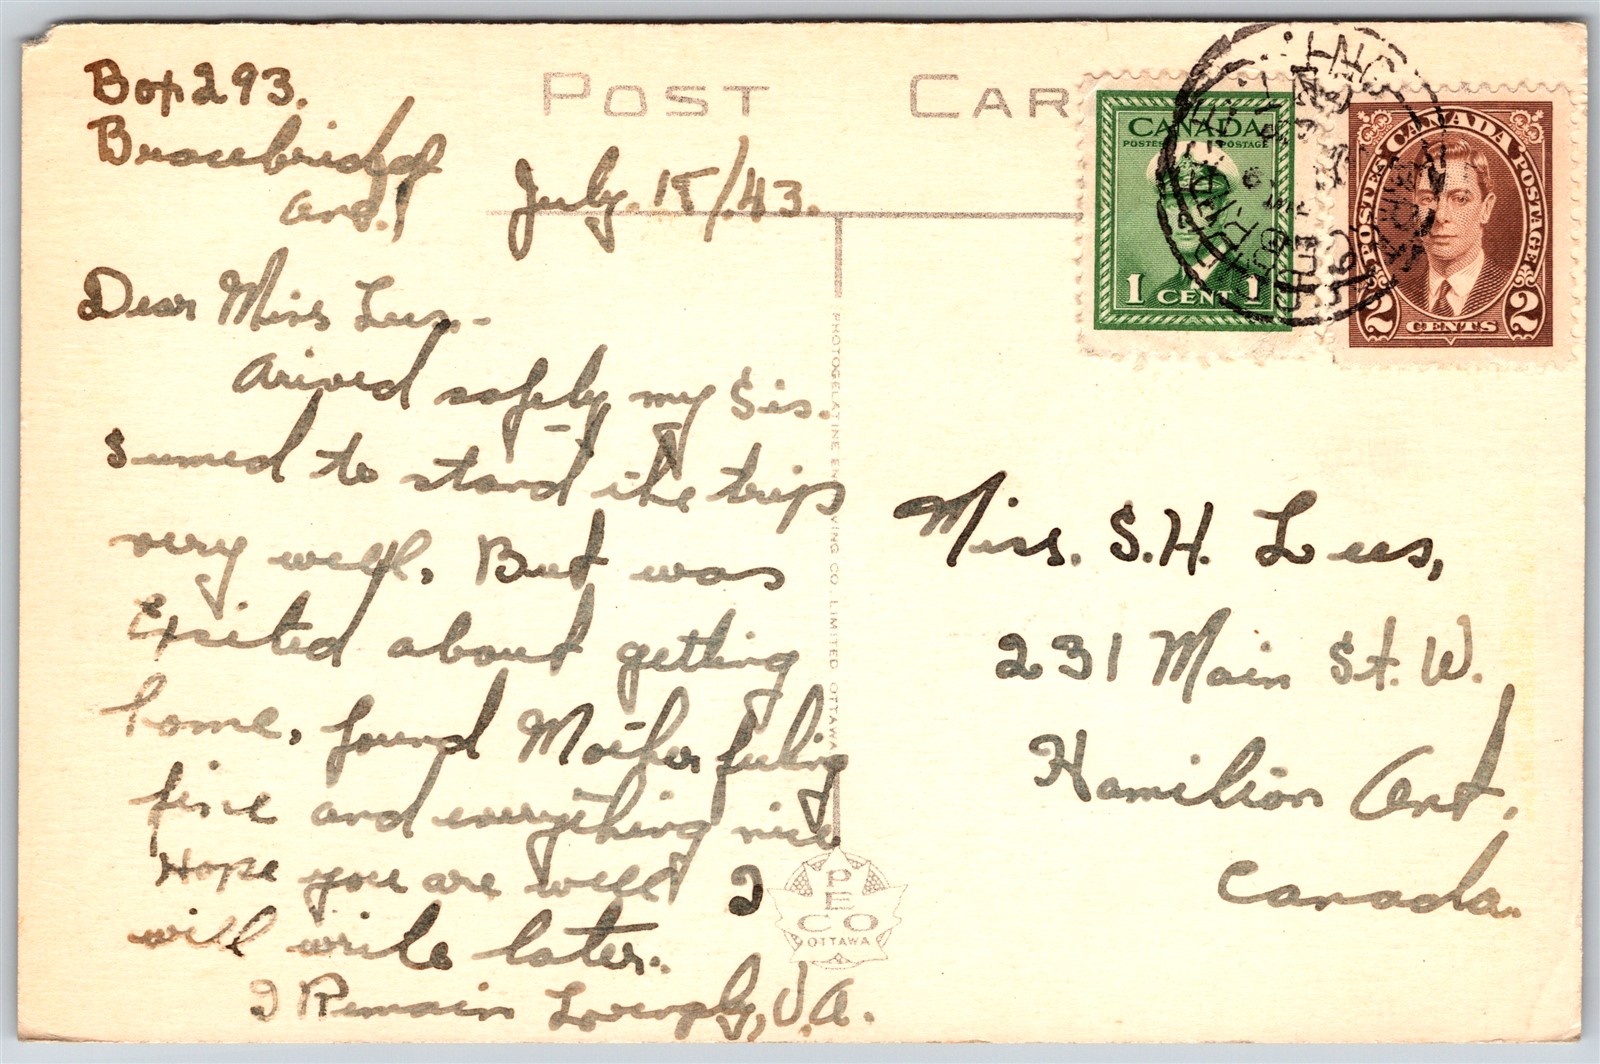 POST CAR
Box 293.
Bracebridge
Ont.
July. 15/.43.
Dear Miss Lees,-
Arived safely my Sis.
Sumed to stand the trip
very well. But was
Exsited about getting
home, found Mother feeling
fine and everything nice
Hope you are well I
will write later.
I Remain Lovingly, V.A.
CANADA
POSTES POSTAGE
1 CENT 1
POSTES CANADA POSTAGE
2 CENTS 2
Miss. S.H. Lees,
231 Main St. W.
Hamilton Ont.
Canada.
PHOTOGELATINE ENGRAVING CO. LIMITED OTTAWA
PECO
OTTAWA